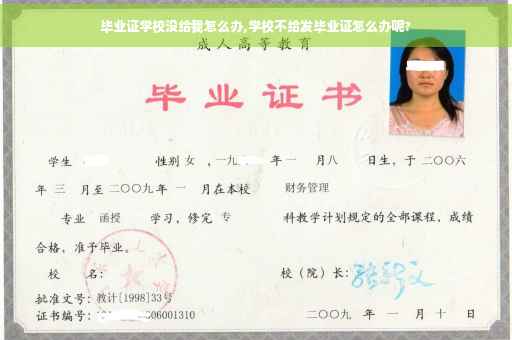 毕业证学校没给我怎么办,学校不给发毕业证怎么办呢?
成人高等教育
毕业证书
学生 性别 女 ，一九 年一 月八 日生，于二〇〇六
年 三 月至二〇〇九年 一 月在本校 财务管理
专业 函授 学习，修完 专 科教学计划规定的全部课程，成绩
合格，准予毕业。
校 名： 校（院）长：
批准文号：教计[1998]33号
证书编号： 06001310 二〇〇九 年 一 月 十 日